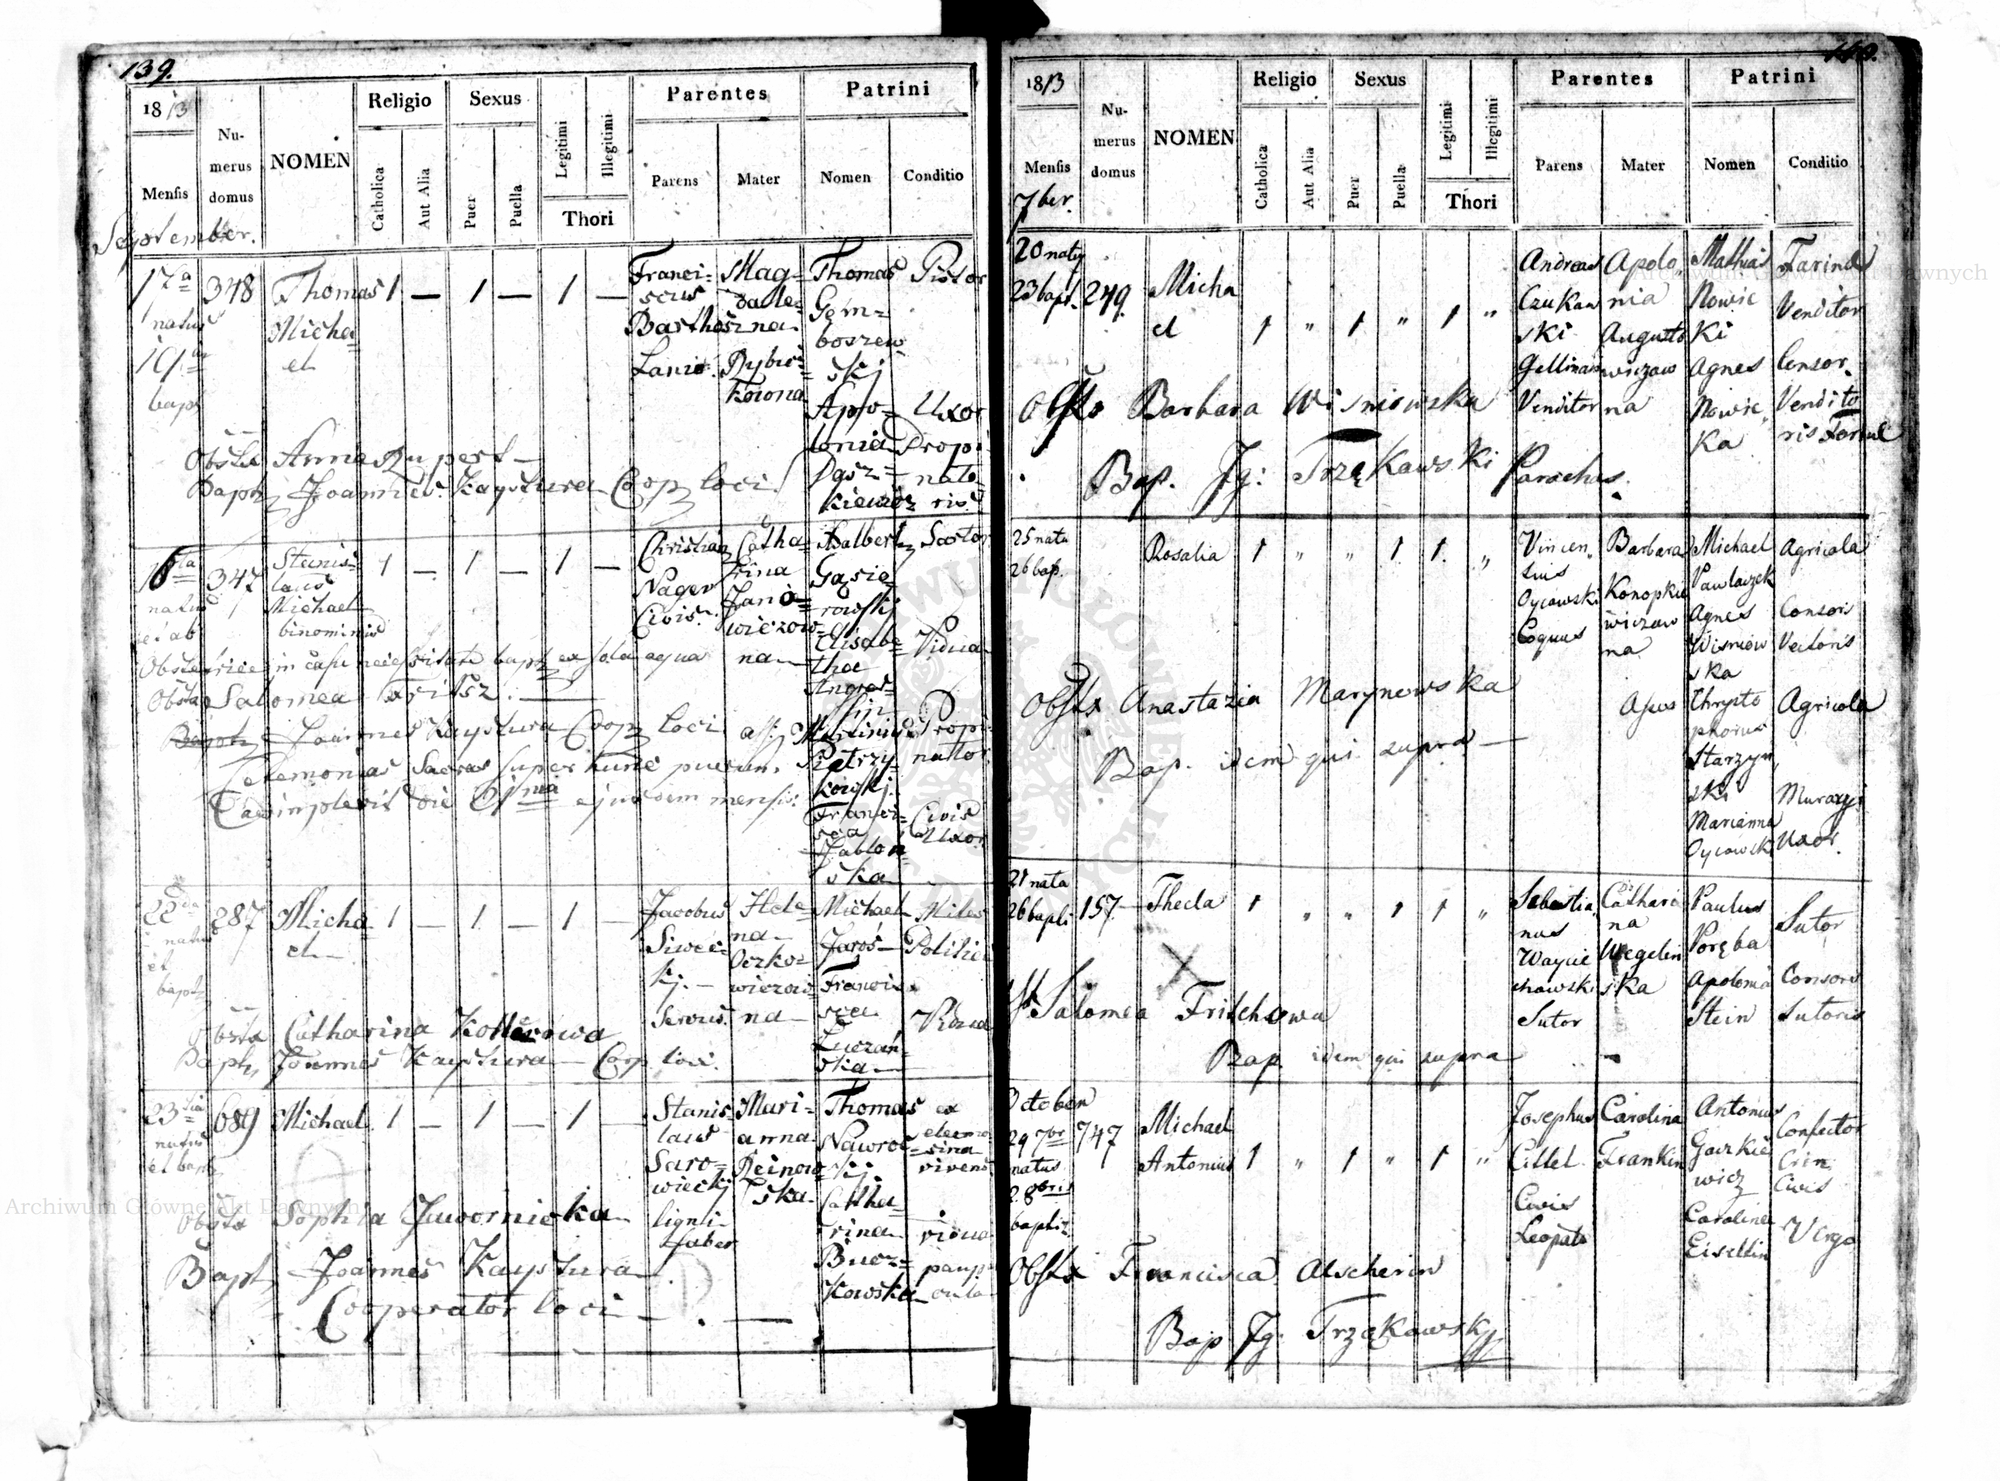 139.
1813
Mensis
Numerus domus
NOMEN
Religio
Catholica
Aut Alia
Sexus
Puer
Puella
Legitimi
Illegitimi
Thori
Parentes
Parens
Mater
Patrini
Nomen
Conditio
September.
17a
natus
19
bapt
348
Thomas
Micha=
el
1 — 1 — 1 —
Franci=
scus
Barthos
Lanio.
Mag=
dale=
na
Rybic=
kowna
Thomas
Gem=
boszew
ski
Apo=
lonia
Pistor
Uxor
Propi=
nato=
ris
Obstx Anna Rupert —
Bapt Joannes Kaystura Coop loci
347
Stanis=
laus
Michael
binominis
1 — 1 — 1 —
natus
et ab
Christian
Nager
Civis.
Catha=
rina
Jano=
wiczow=
na
Adalbert
Gąsio=
rowski
Elisabe=
tha
Sartor
Vidua
Obstetrice in casu necessitatis bapt ex sola aqua
Obstx Salomea Fritsz. —
Bapt Joannes Kaystura Coop loci
ass: Martinus
Pietrzy
kowski
Franci=
sca
Jablon
ska
Propi=
nator
Civis
Uxor
Ceremonias Sacras super hunc puerum
adimplevit die ejusdem mensis.
22
natus
et
bapt
287
Micha
el
1 — 1 — 1 —
Jacobus
Siwec=
kj.
Servus.
Hele=
na
Oczko=
wiczow
na
Michael
Jaroś
Francis
sca
Luczan=
ska
Miles
Politiei
Vidua
Obstx Catharina Kollerowa
Bapt Joannes Kaystura — Coop loci.
23tia
natus
et bapt
689
Michael
1 — 1 — 1 —
Stanis=
laus
Saro=
wiecki
ligni=
faber
Mari=
anna
Reinow=
ska
Thomas
Nawroc=
ki
Catha=
rina
Bucz=
kowska
ex
eleemo
sina
vivens
vidua
Obstx Sophia Jawornicka
Bapt Joannes Kaystura
Cooperator loci —
1813
Mensis
7ber.
Numerus domus
NOMEN
Religio
Catholica
Aut Alia
Sexus
Puer
Puella
Legitimi
Illegitimi
Thori
Parentes
Parens
Mater
Patrini
Nomen
Conditio
20 natus
23 bapt.
249.
Micha
el
1 " 1 " 1 "
Andreas
Czukaw
ski
Gallinar
Venditor
Apolo
nia
Augusto
wiczow
na
Mathias
Nowic
ki
Agnes
Nowic
ka
Farinae
Venditor
Consor.
Vendito
ris
Obstx Barbara Wisniowska
Bap. Jg: Trząkawski Parochus.
25 nata
26 bap.
Rosalia
1 " " 1 1. "
Vincen
tius
Oycowski
Coquus
Barbara
Konopkie
wiczow
na
Michael
Pawlaczek
Agnes
Wisniow
ska
Agricola
Consors
Vectoris
Obstx Anastazia Marynowska
Bap. idem qui supra —
Assus
Chrysto
phorus
Starzyn
ski
Marianna
Oycowski
Agricola
Muraryi
Uxor
21 nata
26 bapti
157
Thecla
1 " " 1 1 "
Sebastia
nus
Waycie
chowski
Sutor
Cathari
na
Wegelin
ska
Paulus
Poręba
Apolonia
Stein
Sutor
Consors
Sutoris
Salomea Fritchowa
Bap idem qui supra
October
29 7br
natus
2. 8bris
baptiz
747
Michael
Antonius
1 " 1 " 1 "
Josephus
Cittel
Civis
Leopols
Carolina
Frankin
Antonius
Gorzkie
wicz
Carolina
Eiseltin
Confector
Civis
Virgo
Obstx Francisca Alscherin
Bap Jg: Trząkawski
Archiwum Główne Akt Dawnych